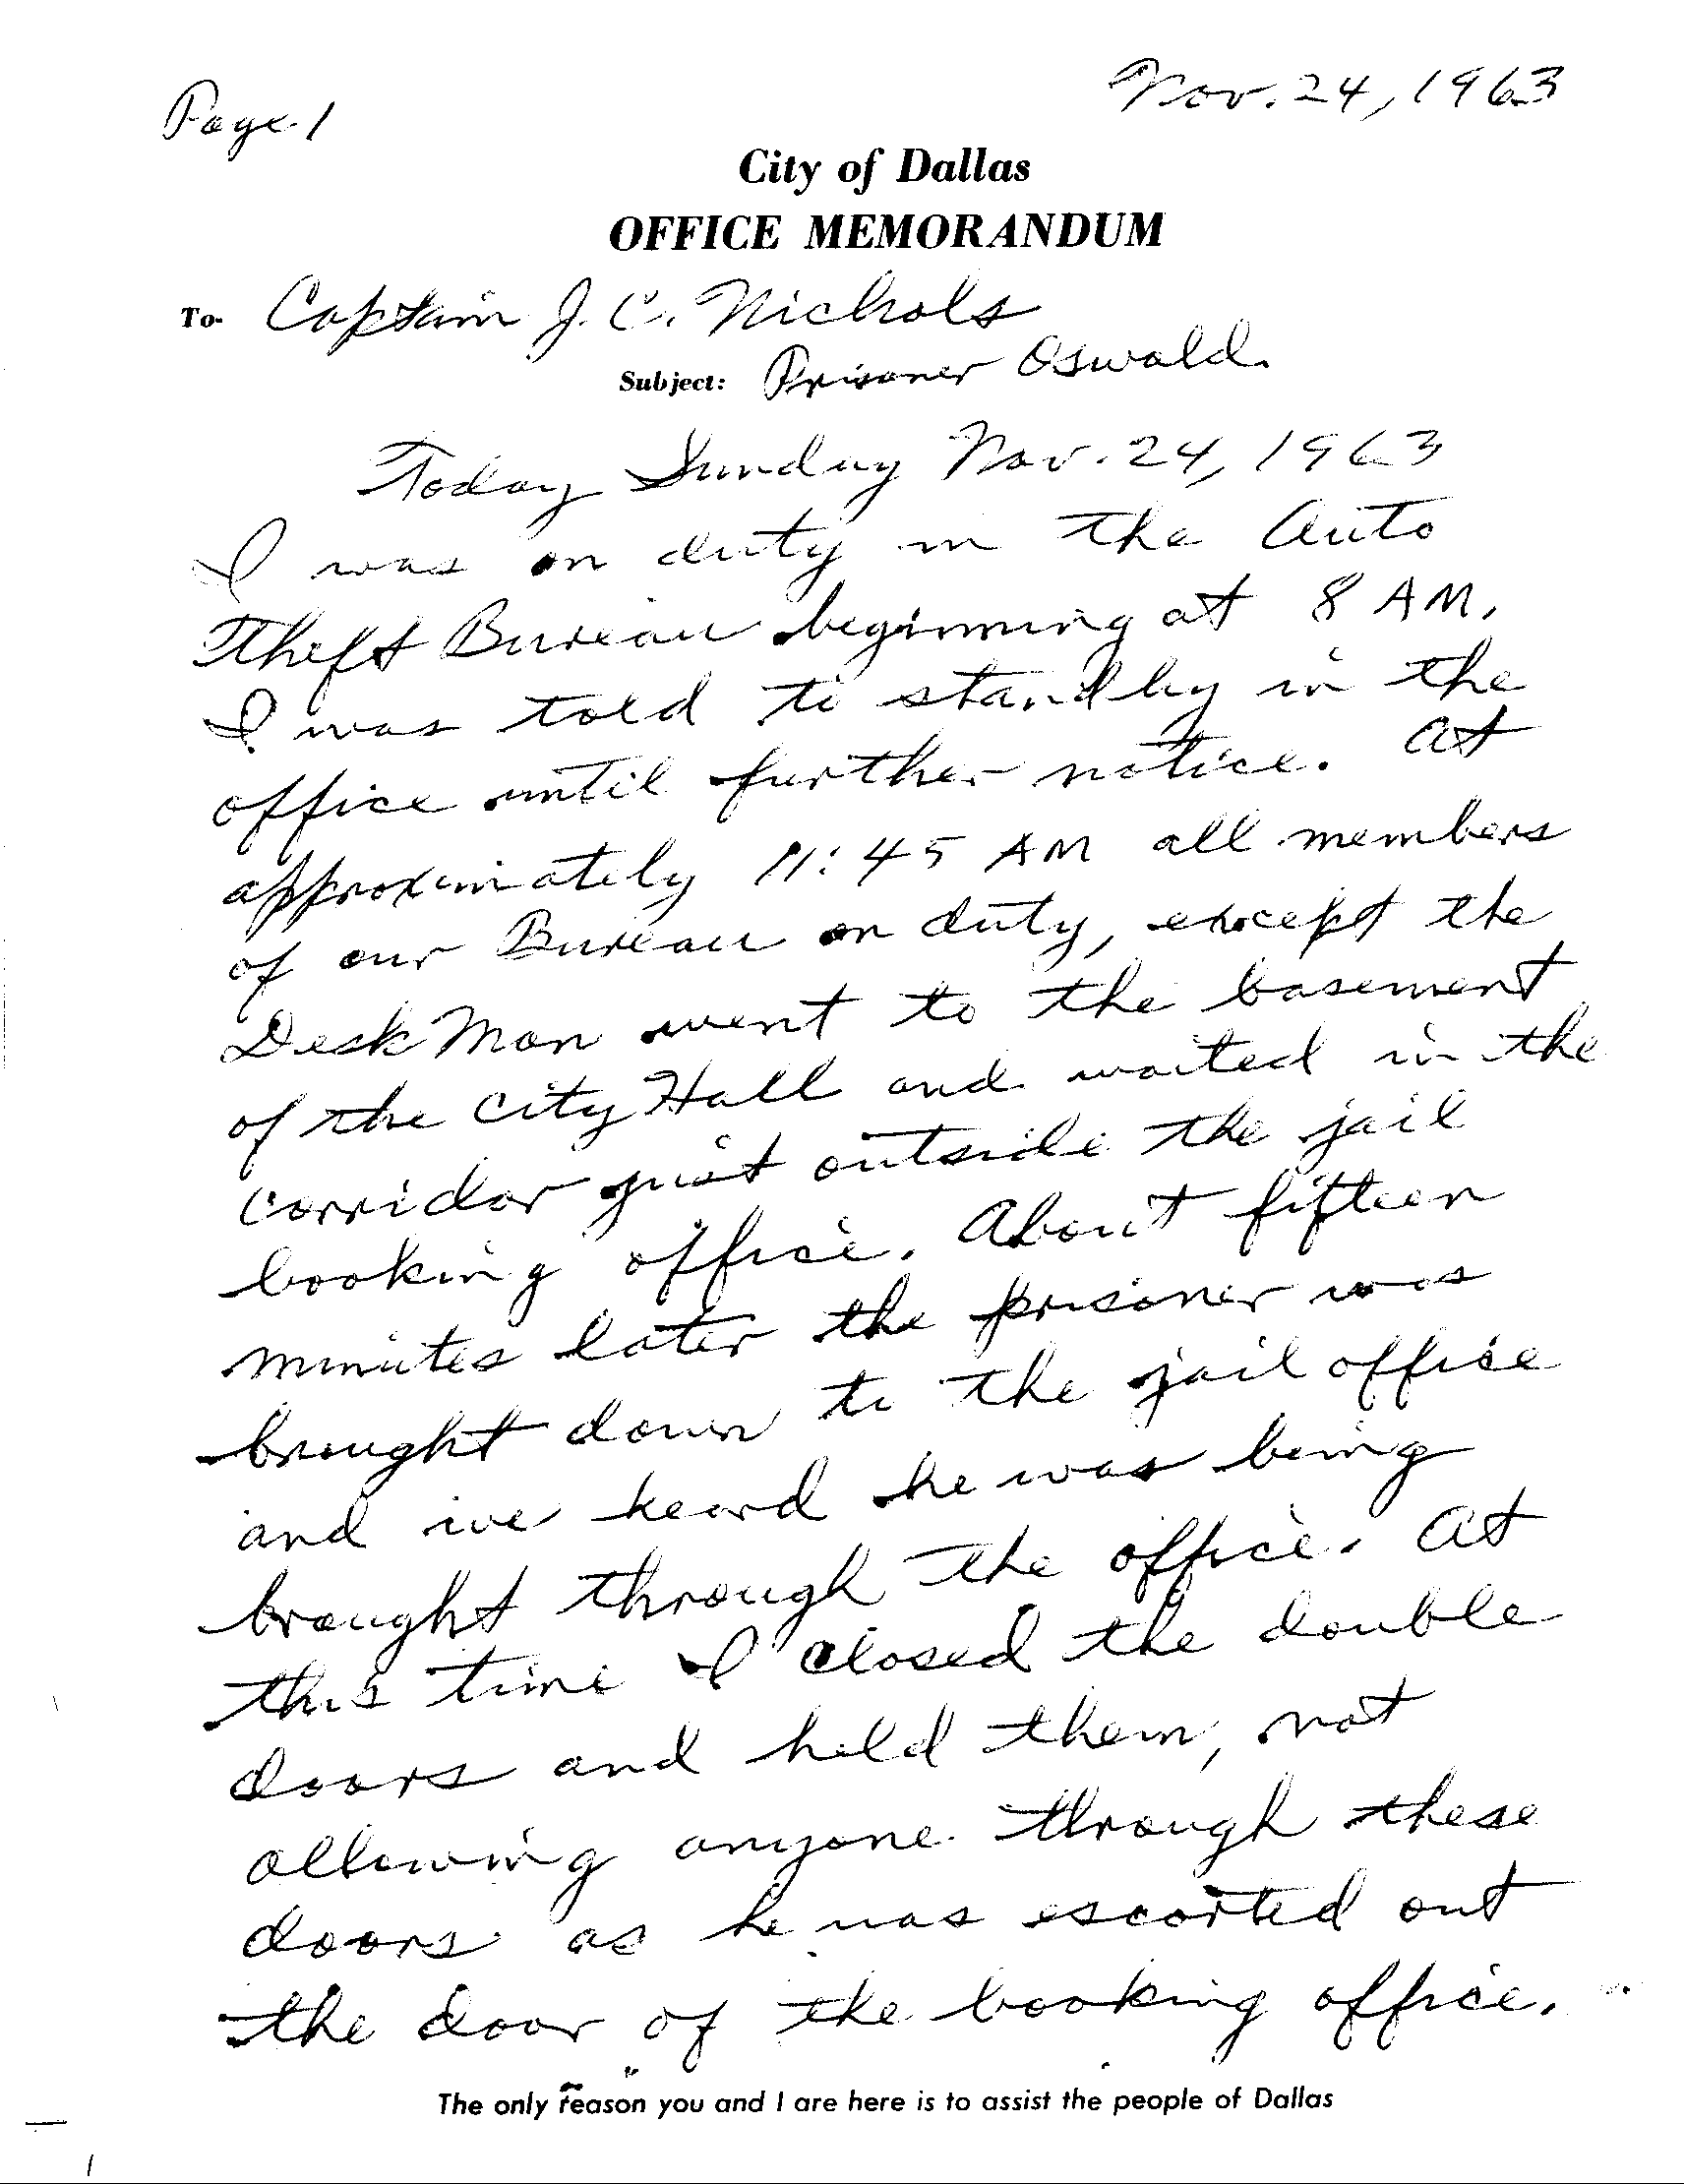 Page 1
Nov. 24, 1963
City of Dallas
OFFICE MEMORANDUM
To- Captain J. C. Nichols
Subject: Prisoner Oswald.
Today Sunday Nov. 24, 1963
I was on duty in the Auto
Theft Bureau beginning at 8 AM.
I was told to standby in the
office until further notice. At
approximately 11:45 AM all members
of our Bureau on duty, except the
Desk Man went to the basement
of the City Hall and waited in the
corridor just outside the jail
booking office. About fifteen
minutes later the prisoner was
brought down to the jail office
and we heard he was being
brought through the office. At
this time I closed the double
doors and held them, not
allowing anyone through these
doors as he was escorted out
the door of the booking office.
The only reason you and I are here is to assist the people of Dallas
1